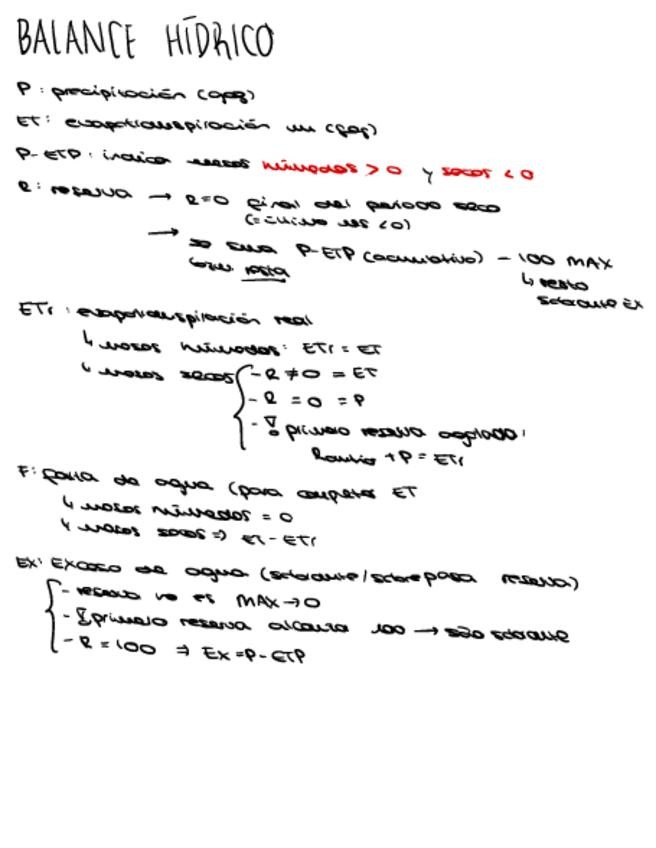 BALANCE HÍDRICO
P: precipitación (
ET: evapotranspiración
P-ETP: indica meses húmedos > 0 y secos < 0
R: reserva → R=0 final del período seco
(=último mes <0)
→ se suma P-ETP (acumulativo) - 100 MAX
resta
↳ resto
sobrante Ex
ETr: evapotranspiración real
↳ meses húmedos: ETr = ET
↳ meses secos { - R ≠ 0 = ET
- R = 0 = P
- ! primero reserva agotada:
+ P = ETr
F: falta de agua (para completar ET
↳ meses húmedos = 0
↳ meses secos ⇒ ET - ETr
Ex: Exceso de agua (sobrante/sobrepasa reserva)
- reserva no es MAX → 0
- ! primero reserva alcanza 100 → sólo sobrante
- R = 100 ⇒ Ex = P - ETP